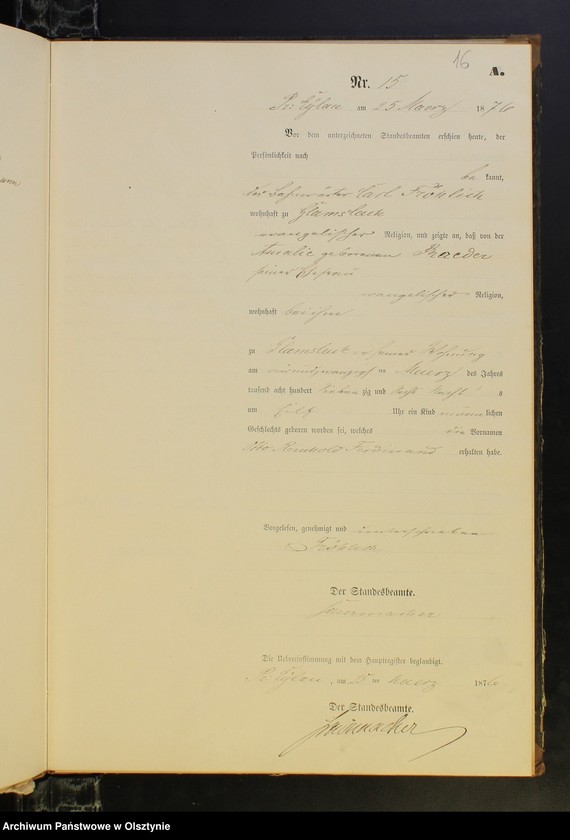 16
A.
Nr. 15
Pr: Eylau am 25 Maerz 1876
Vor dem unterzeichneten Standesbeamten erschien heute, der
Persönlichkeit nach
be kannt,
der Carl Fröhlich
wohnhaft zu Glamslack
evangelischer Religion, und zeigte an, daß von der
Amalie geborenen Raeder
seiner Ehefrau
evangelischer Religion,
wohnhaft bei ihm
zu Glamslack in seiner Wohnung
am ten Maerz des Jahres
tausend acht hundert sieben zig und sechs Nachts
um Uhr ein Kind männ lichen
Geschlechts geboren worden sei, welches die Vornamen
Otto Reinhold Ferdinand erhalten habe.
Vorgelesen, genehmigt und unterschrieben
Fröhlich
Der Standesbeamte.
Die Uebereinstimmung mit dem Hauptregister beglaubigt.
Pr: Eylau, am 25 ten Maerz 1876
Der Standesbeamte.
Archiwum Państwowe w Olsztynie